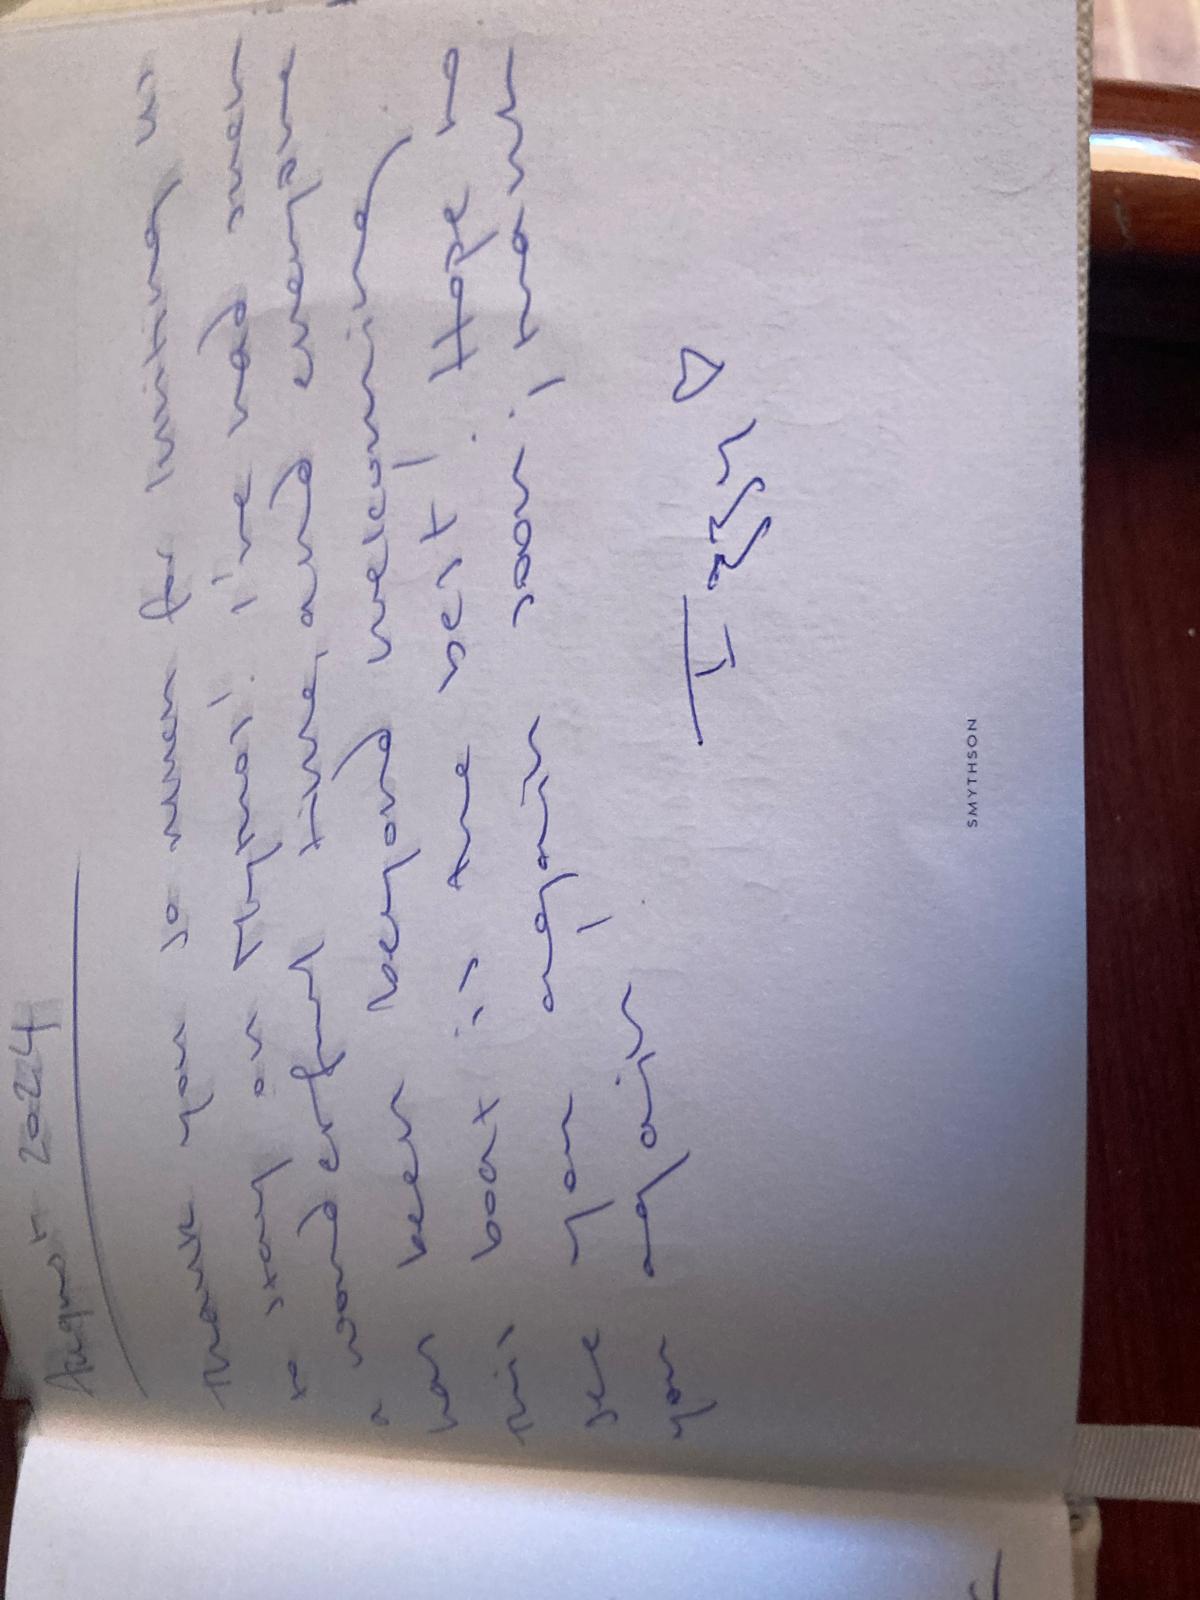 August 2024
Thank you so much for inviting us
to stay on . I've had such
a wonderful time, and everyone
has been beyond welcoming,
this boat is the best! Hope to
see you again soon! Thank
you again
SMYTHSON